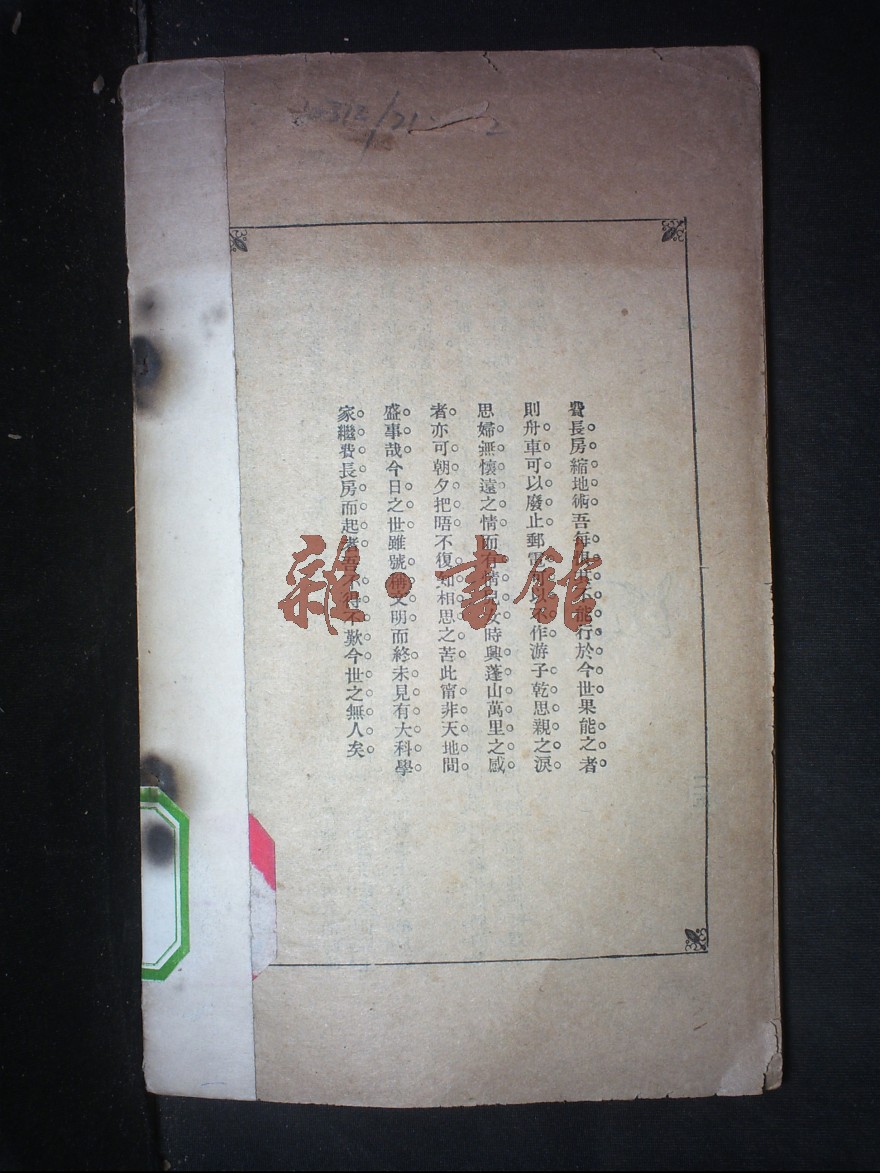 費長房縮地術吾每恨其不能行於今世果能之者
則舟車可以廢止郵電可以不作游子乾思親之淚
思婦無懷遠之情而有情兒女時興蓬山萬里之感
者亦可朝夕把晤不復知相思之苦此甯非天地間
盛事哉今日之世雖號稱文明而終未見有大科學
家繼費長房而起者吾不得不歎今世之無人矣
雜·書館